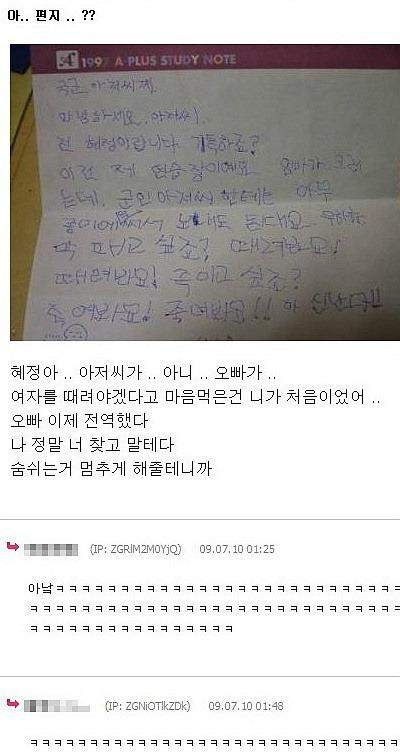 아.. 편지 .. ??
A+ 1997 A-PLUS STUDY NOTE
국군 아저씨께.
안녕하세요. 아저씨.
전 혜정이랍니다. 기특하죠?
이건 제 연습장이에요 엄마가
는데, 군인 아저씨 한테는 아무
종이에 써서 보내도 된대요
막 패고 싶죠? 때려봐요!
때려봐요! 죽이고 싶죠?
죽여봐요! 죽여봐요!! 아 신난다!!
혜정아 .. 아저씨가 .. 아니 .. 오빠가 ..
여자를 때려야겠다고 마음먹은건 니가 처음이었어 ..
오빠 이제 전역했다
나 정말 너 찾고 말테다
숨쉬는거 멈추게 해줄테니까
(IP: ZGRlM2M0YjQ) 09.07.10 01:25
아냨ㅋㅋㅋㅋㅋㅋㅋㅋㅋㅋㅋㅋㅋㅋㅋㅋㅋㅋㅋㅋㅋ
ㅋㅋㅋㅋㅋㅋㅋㅋㅋㅋㅋㅋㅋㅋㅋㅋㅋㅋㅋㅋㅋㅋㅋ
ㅋㅋㅋㅋㅋㅋㅋㅋㅋㅋㅋㅋㅋ
(IP: ZGNiOTlkZDk) 09.07.10 01:48
ㅋㅋㅋㅋㅋㅋㅋㅋㅋㅋㅋㅋㅋㅋㅋㅋㅋㅋㅋㅋㅋㅋㅋ